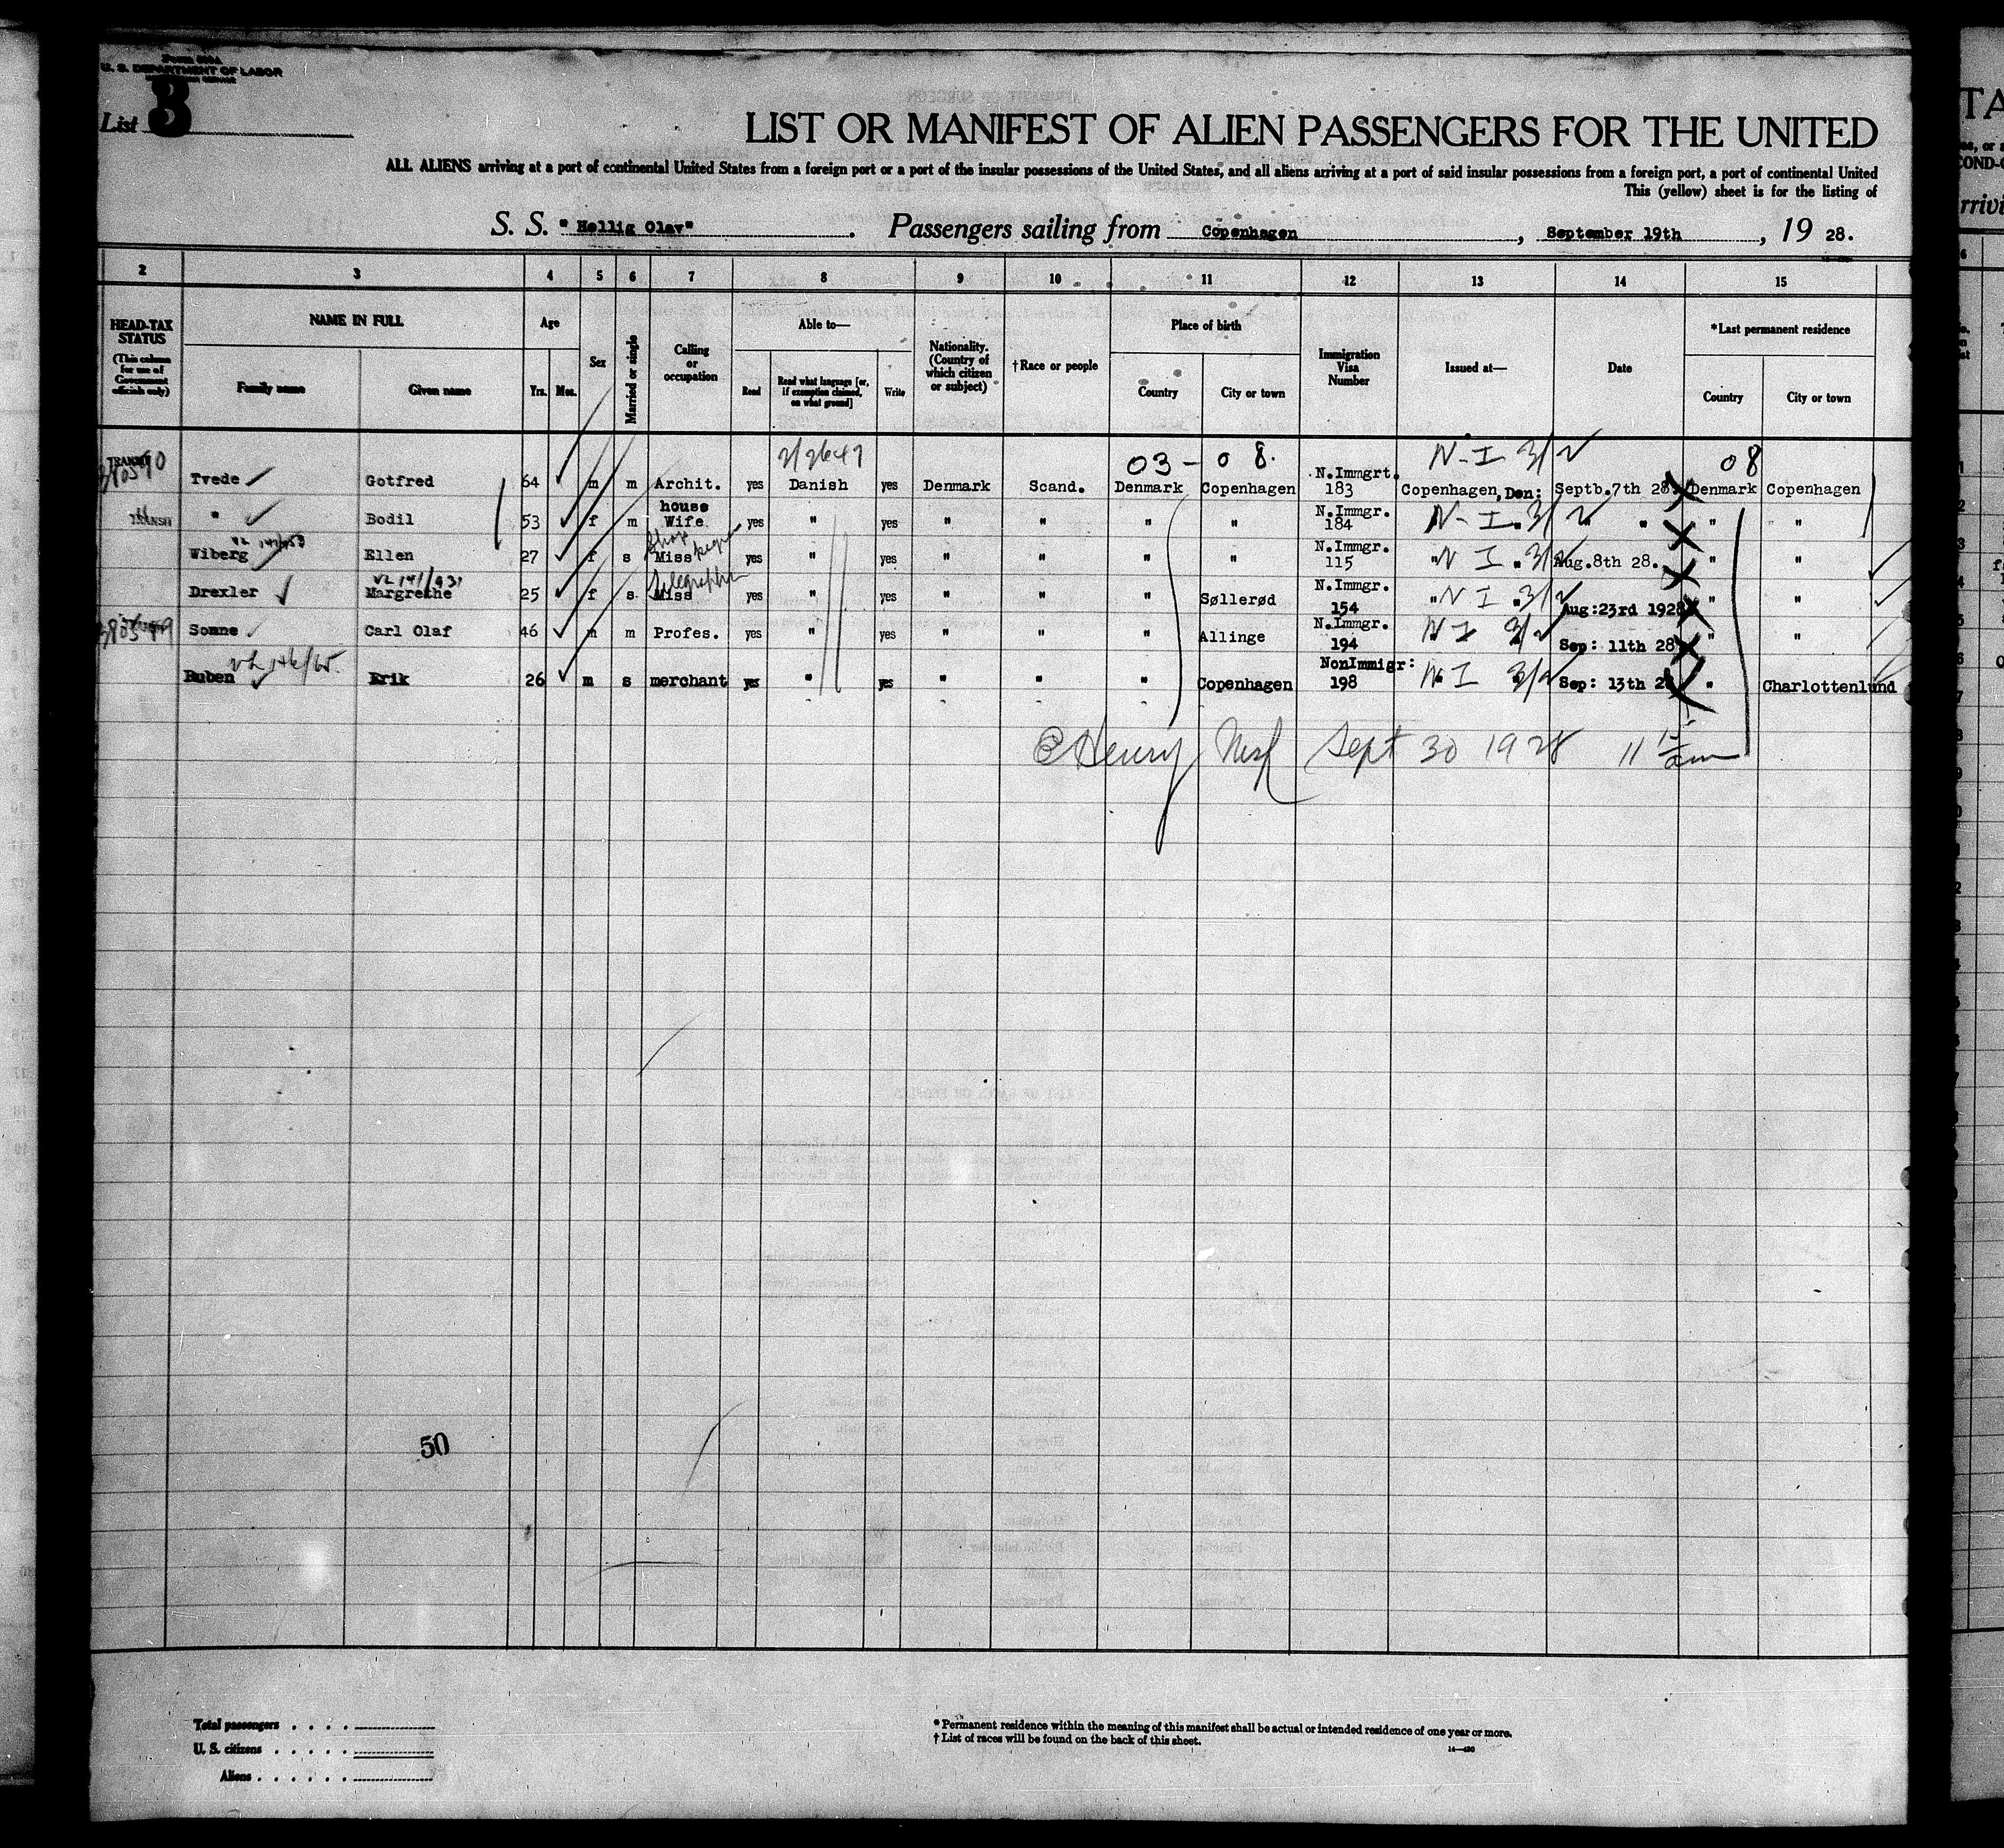 U. S. DEPARTMENT OF LABOR
List 3
LIST OR MANIFEST OF ALIEN PASSENGERS FOR THE UNITED
ALL ALIENS arriving at a port of continental United States from a foreign port or a port of the insular possessions of the United States, and all aliens arriving at a port of said insular possessions from a foreign port, a port of continental United
This (yellow) sheet is for the listing of
S. S. "Hellig Olav". Passengers sailing from Copenhagen, September 19th, 19 28.
2 3 4 5 6 7 8 9 10 11 12 13 14 15
HEAD-TAX STATUS (This column for use of Government officials only)
NAME IN FULL Family name Given name
Age Yrs. Mos.
Sex
Married or single
Calling or occupation
Able to— Read Read what language [or, if exemption claimed, on what ground] Write
Nationality. (Country of which citizen or subject)
†Race or people
Place of birth Country City or town
Immigration Visa Number
Issued at—
Date
*Last permanent residence Country City or town
2/2647 03 - 08. N-I 3/2 08
TRANSIT Tvede Gotfred 64 m m Archit. yes Danish yes Denmark Scand. Denmark Copenhagen N.Immgrt. 183 Copenhagen, Den: Septb.7th 28. Denmark Copenhagen
TRANSIT " Bodil 53 f m house Wife yes " yes " " " " N.Immgr. 184 N-I 3/2 " " " "
Wiberg Ellen 27 f s Miss yes " yes " " " " N.Immgr. 115 " N I 3/2 Aug.8th 28. " "
Drexler Margrethe 25 f s Miss yes " yes " " " Søllerød N.Immgr. 154 " N I 3/2 Aug:23rd 1928 " "
Sonne Carl Olaf 46 m m Profes. yes " yes " " " Allinge N.Immgr. 194 N I 3/2 Sep: 11th 28 " "
Ruben Erik 26 m s merchant yes " yes " " " Copenhagen NonImmigr: 198 N I 3/2 Sep: 13th 28 " Charlottenlund
Sept 30 1928
50
Total passengers
U. S. citizens
Aliens
* Permanent residence within the meaning of this manifest shall be actual or intended residence of one year or more.
† List of races will be found on the back of this sheet.